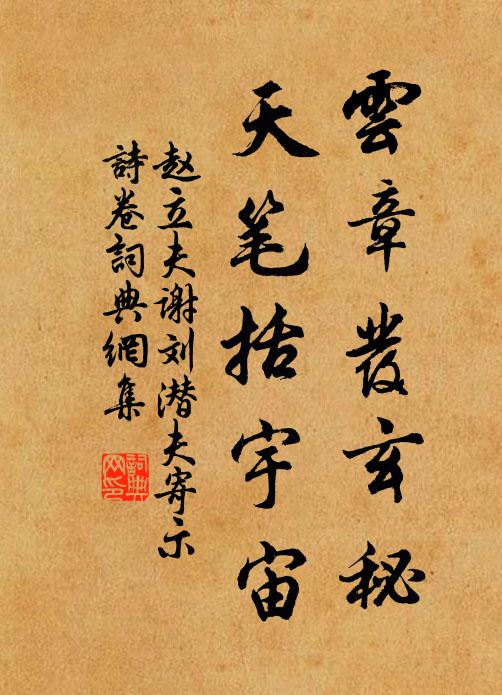 雲章發玄秘
天笔括宇宙
赵立夫谢刘潜夫寄示
詩卷詞典網集
詞典
网印